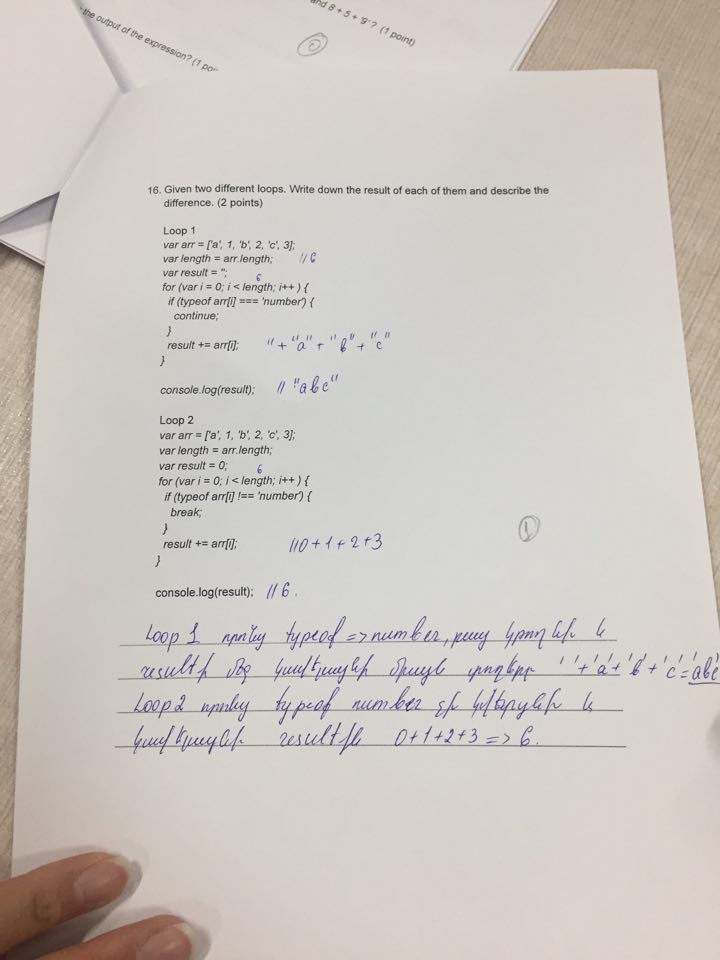 the output of the expression? (1 poi
and 8 + 5 + '9'? (1 point)
0
16. Given two different loops. Write down the result of each of them and describe the
difference. (2 points)
Loop 1
var arr = ['a', 1, 'b', 2, 'c', 3];
var length = arr.length; //6
var result = '';
6
for (var i = 0; i < length; i++ ) {
if (typeof arr[i] === 'number') {
continue;
}
result += arr[i]; '' + "a" + "b" + "c"
}
console.log(result); // "abc"
Loop 2
var arr = ['a', 1, 'b', 2, 'c', 3];
var length = arr.length;
var result = 0;
6
for (var i = 0; i < length; i++ ) {
if (typeof arr[i] !== 'number') {
break;
}
1
result += arr[i]; //0+1+2+3
}
console.log(result); //6.
Loop 1 typeof => number, և
result մեջ միայն ' '+'a'+'b'+'c'='abc'
Loop 2 typeof number և
0+1+2+3 => 6.